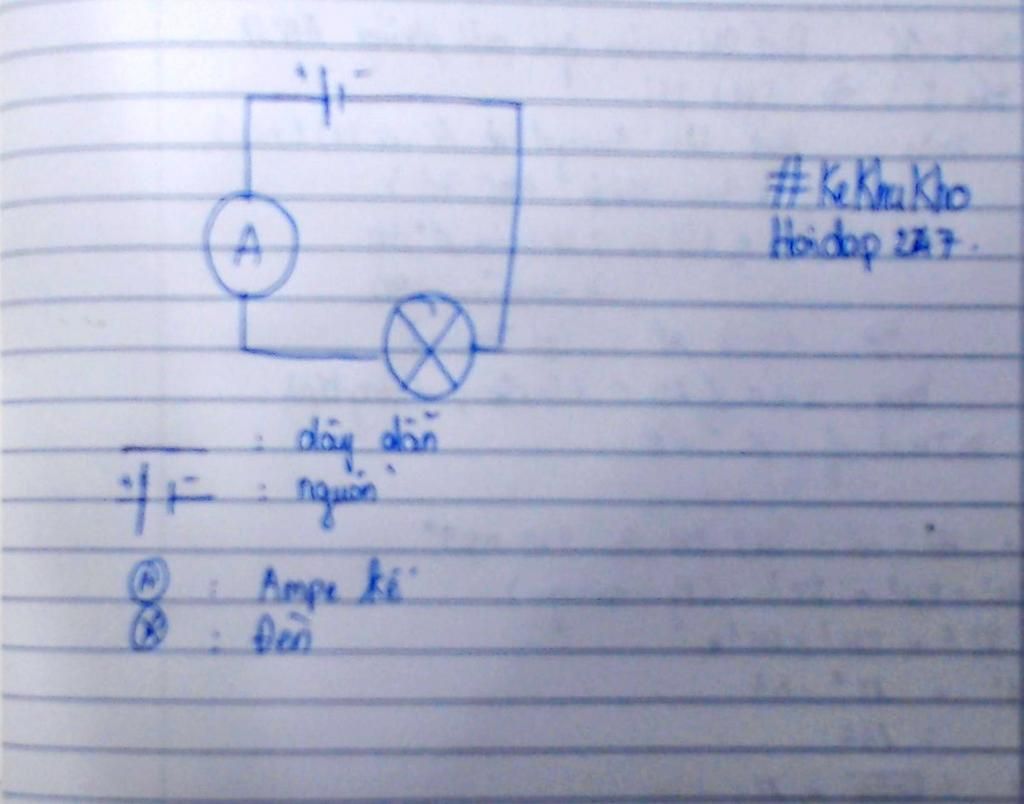 + -
A
#KeKhuKho
Hoidap247.
: dây dẫn
+ - : nguồn
A : Ampe kế
: Đèn